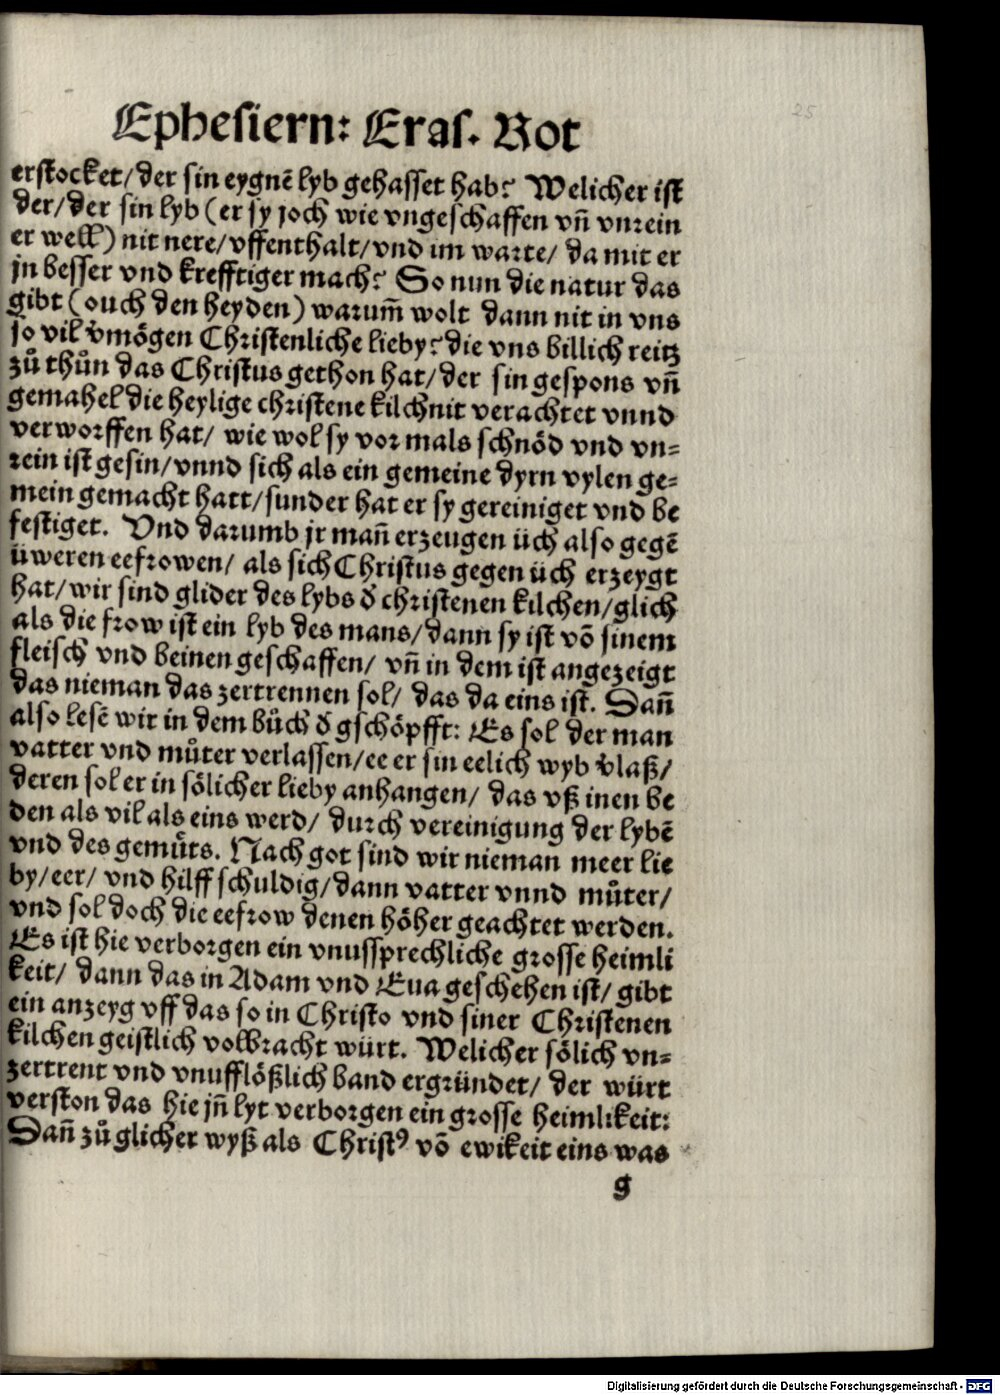 25
Ephesiern: Eras. Rot
erstocket/der sin eygnē lyb gehasset hab? Welicher ist
der/der sin lyb (er sy joch wie vngeschaffen vn̄ vnrein
er well) nit nere/vffenthalt/vnd im warte/ da mit er
jn besser vnd krefftiger mach? So nun die natur das
gibt (ouch den heyden) warum̄ wolt dann nit in vns
so vil v̓mögen Christenliche lieby? die vns billich reitz
zů thůn das Christus gethon hat/der sin gespons vn̄
gemahel die heylige christene kilch nit verachtet vnnd
verworffen hat/ wie wol sy vor mals schnöd vnd vn=
rein ist gesin/vnnd sich als ein gemeine dyrn vylen ge=
mein gemacht hatt/sunder hat er sy gereiniget vnd be
festiget. Vnd darumb jr man̄ erzeugen üch also gegē
üweren eefrowen/ als sich Christus gegen üch erzeygt
hat/wir sind glider des lybs d̓ christenen kilchen/glich
als die frow ist ein lyb des mans/dann sy ist vō sinem
fleisch vnd beinen geschaffen/ vn̄ in dem ist angezeigt
das nieman das zertrennen sol/ das da eins ist. Dan̄
also lesē wir in dem bůch d̓ gschöpfft: Es sol der man
vatter vnd můter verlassen/ee er sin eelich wyb v̓laß/
deren sol er in sölicher lieby anhangen/ das vß inen be
den als vil als eins werd/ durch vereinigung der lybē
vnd des gemüts. Nach got sind wir nieman meer lie
by/eer/ vnd hilff schuldig/dann vatter vnnd můter/
vnd sol doch die eefrow denen höher geachtet werden.
Es ist hie verborgen ein vnussprechliche grosse heimli
keit/ dann das in Adam vnd Eua geschehen ist/ gibt
ein anzeyg vff das so in Christo vnd siner Christenen
kilchen geistlich volbracht würt. Welicher sölich vn=
zertrent vnd vnufflößlich band ergründet/ der würt
verston das hie jn̄ lyt verborgen ein grosse heimlikeit:
Dan̄ zů glicher wyß als Christꝰ vō ewikeit eins was
g
Digitalisierung gefördert durch die Deutsche Forschungsgemeinschaft - DFG